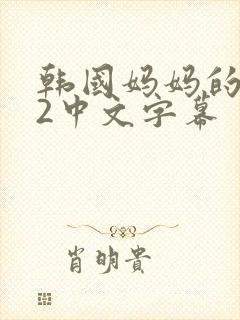 韩国妈妈的
2中文字幕
肖明贵